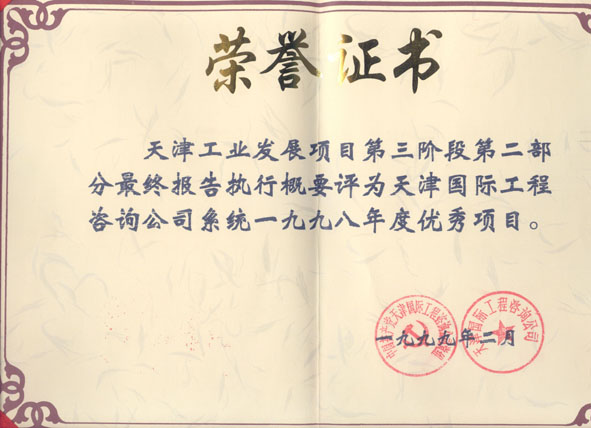 荣誉证书
天津工业发展项目第三阶段第二部
分最终报告执行概要评为天津国际工程
咨询公司系统一九九八年度优秀项目。
天津国际工程咨询公司
一九九九年二月